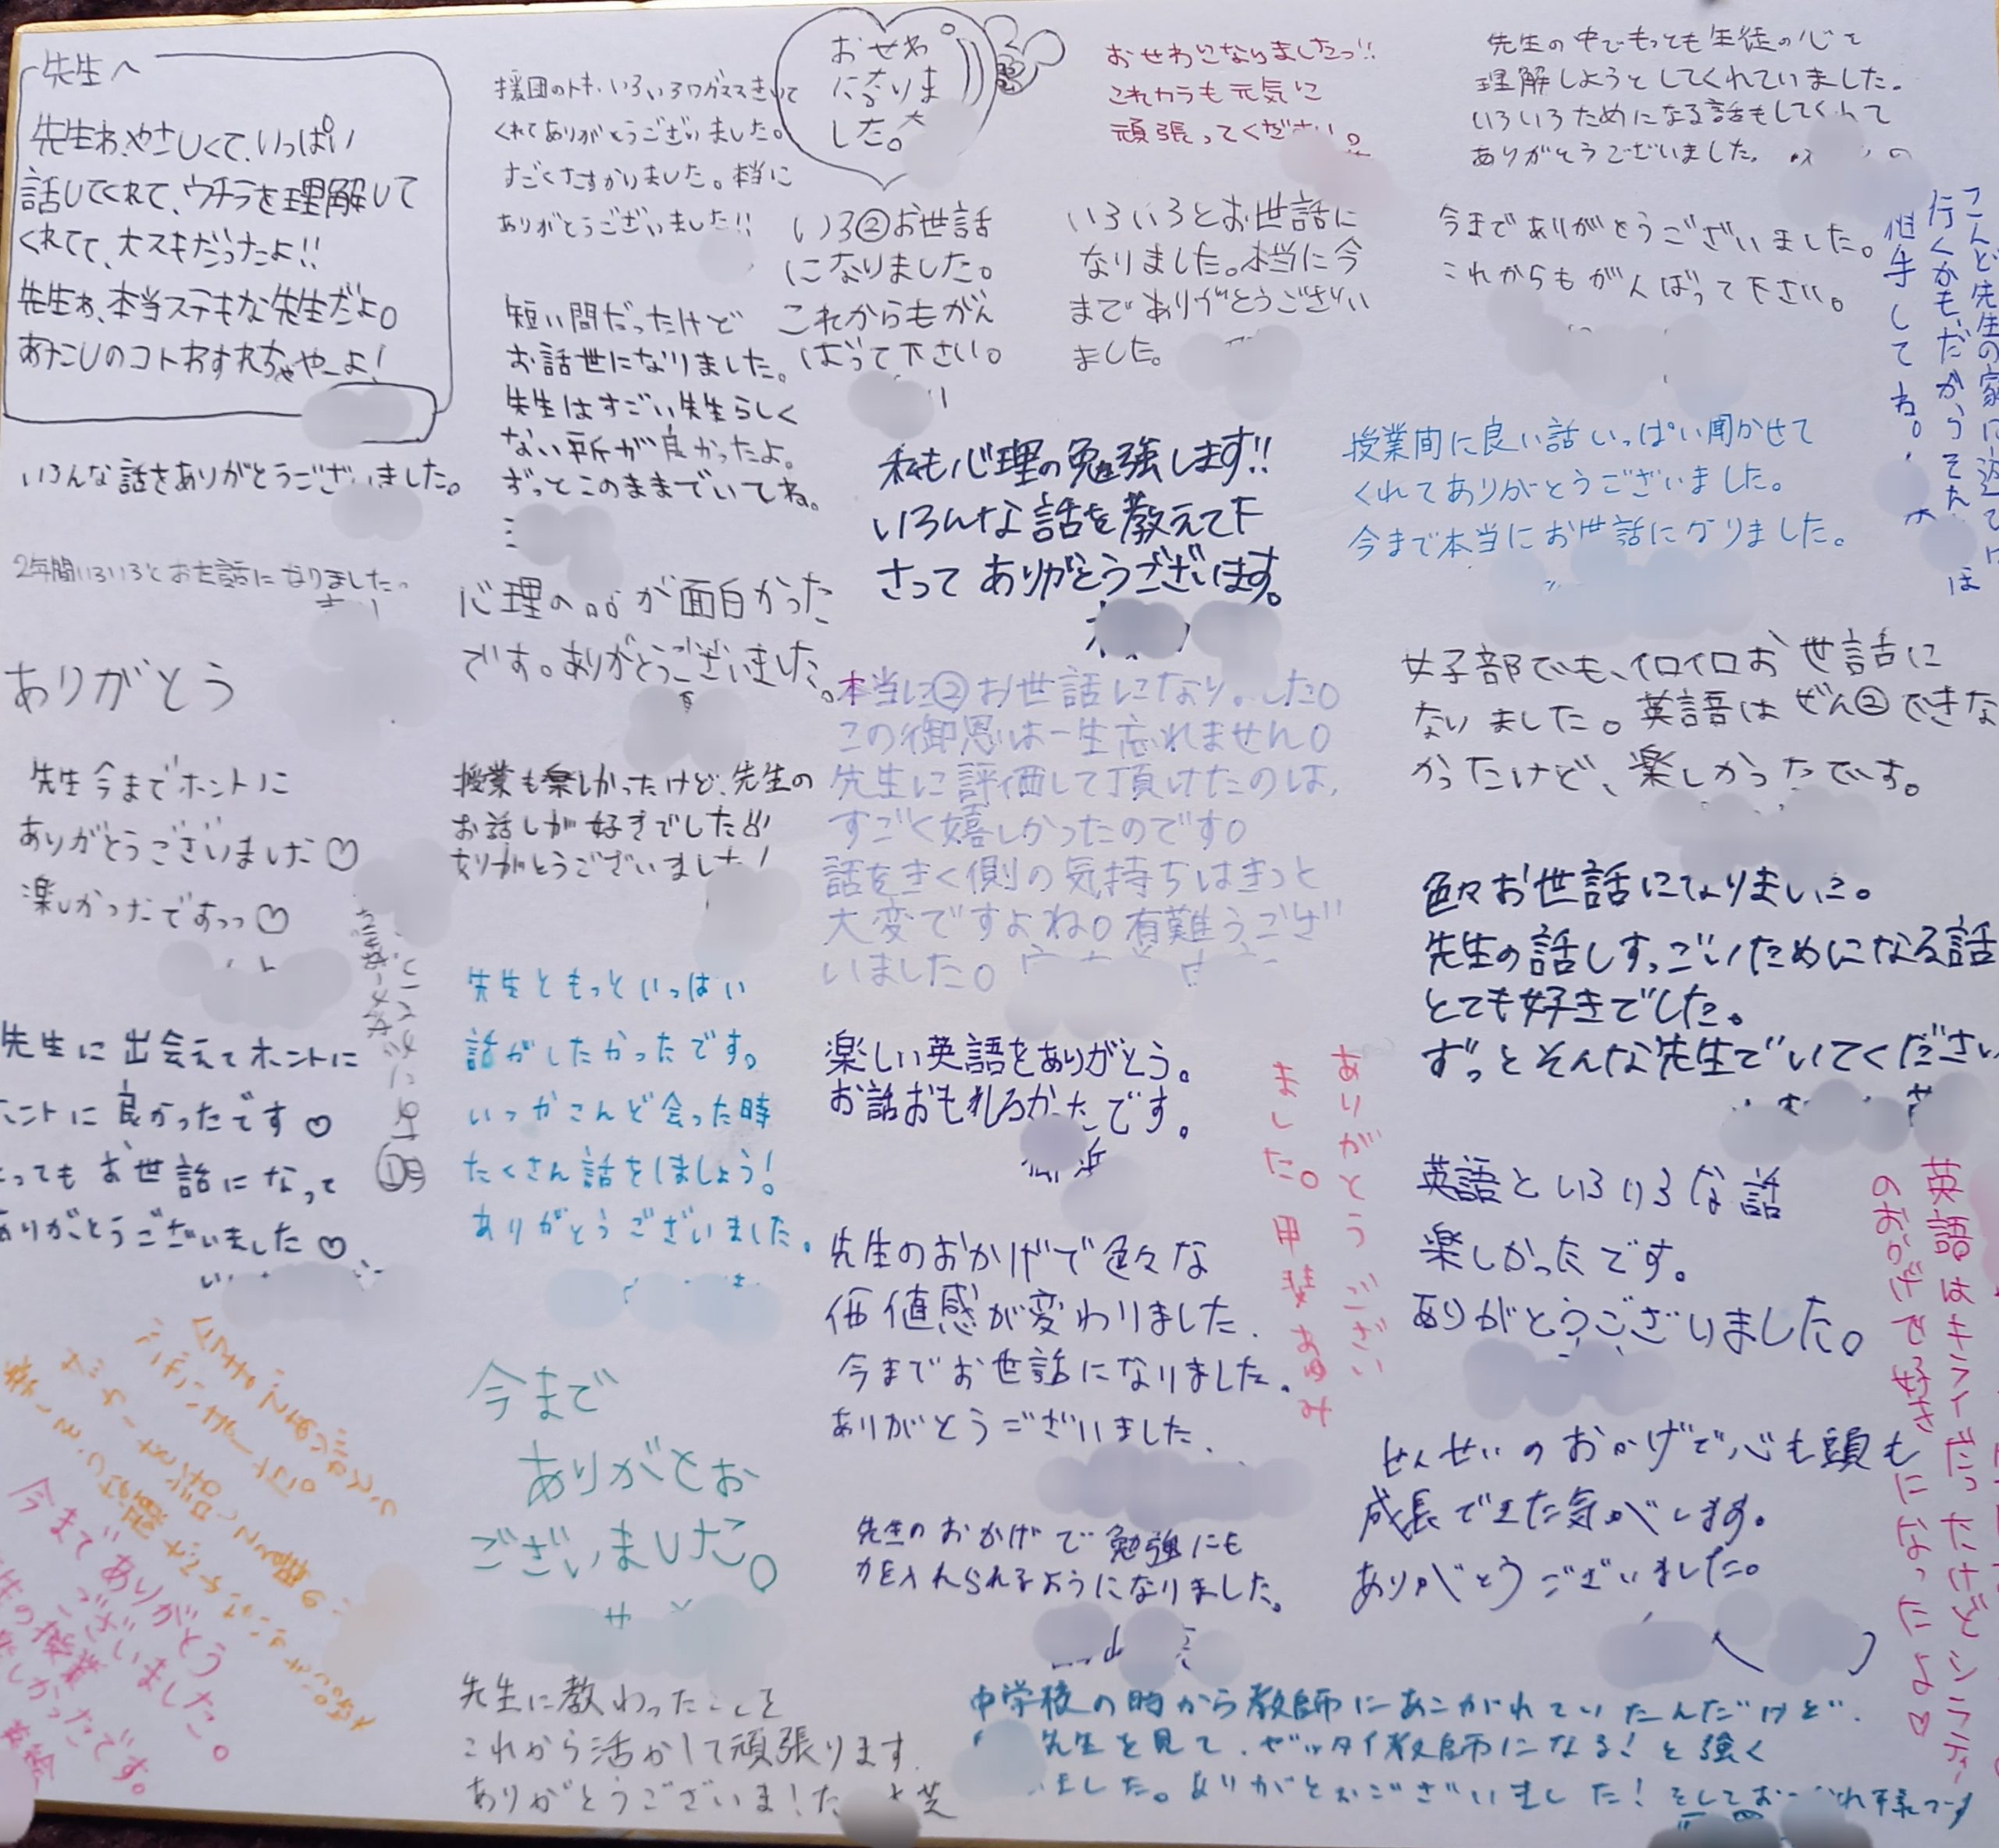 先生へ
先生わ、やさしくて、いっぱい
話してくれて、ウチラを理解して
くれてて、大スキだったよ!!
先生わ、本当ステキな先生だよ。
あたしのコトわすれちゃやーよ!
いろんな話をありがとうございました。
2年間いろいろとお世話になりました。
ありがとう
先生今までホントに
ありがとうございました♡
楽しかったですっっ♡
先生に出会えてホントに
ホントに良かったです♡
とってもお世話になって
ありがとうございました♡
今までありがとう
ございました。
しかったです。
援団のトキ、いろいろワガママきいて
くれてありがとうございました。
すごくたすかりました。本当に
ありがとうございました!!
短い間だったけど
お話世になりました。
先生はすごい先生らしく
ない所が良かったよ。
ずっとこのままでいてね。
心理の が面白かった
です。ありがとうございました。
授業も楽しかったけど、先生の
お話しが好きでした!!
ありがとうございました!
先生ともっといっぱい
話がしたかったです。
いつかこんど会った時
たくさん話をしましょう!
ありがとうございました。
今まで
ありがとお
ございました。
先生に教わったことを
これから活かして頑張ります。
ありがとうございま!た
おせわ
になりま
した。
いろ②お世話
になりました。
これからもがん
ばって下さい。
私も心理の勉強します!!
いろんな話を教えて下
さってありがとうございます。
本当に②お世話になり した。
この御恩は一生忘れません。
先生に評価して頂けたのは、
すごく嬉しかったのです。
話をきく側の気持ちはきっと
大変ですよね。有難うござ
いました。
楽しい英語をありがとう。
お話おもしろかったです。
先生のおかげで色々な
価値感が変わりました.
今までお世話になりました.
ありがとうございました.
先生のおかげで勉強にも
力を入れられるようになりました。
おせわになりましたっ!!
これカラも元気に
頑張ってください。
いろいろとお世話に
なりました。本当に今
までありがとうござい
ました。
ありがとうござい
ました。甲斐あゆみ
先生の中でもっとも生徒の心を
理解しようとしてくれていました。
いろいろためになる話もしてくれて
ありがとうございました。
今までありがとうございました。
これからもがんばって下さい。
こんど先生の家に遊びに
行くかも、だからそん
相手してね。
授業間に良い話いっぱい聞かせて
くれてありがとうございました。
今まで本当にお世話になりました。
女子部でも、イロイロお世話に
ないました。英語はぜん②できな
かったけど、楽しかったです。
色々お世話になりました。
先生の話しすっごいためになる話
とても好きでした。
ずっとそんな先生でいてください
英語といろいろな話
楽しかったです。
ありがとうございました。
英語はキライだったけど
のおかげで好きになったよ♡
せんせいのおかげで心も頭も
成長できた気がします。
ありがとうございました。
中学校の時から教師にあこがれていたんだけど、
先生を見て、ゼッタイ教師になる!と強く
ました。ありがとおございました!